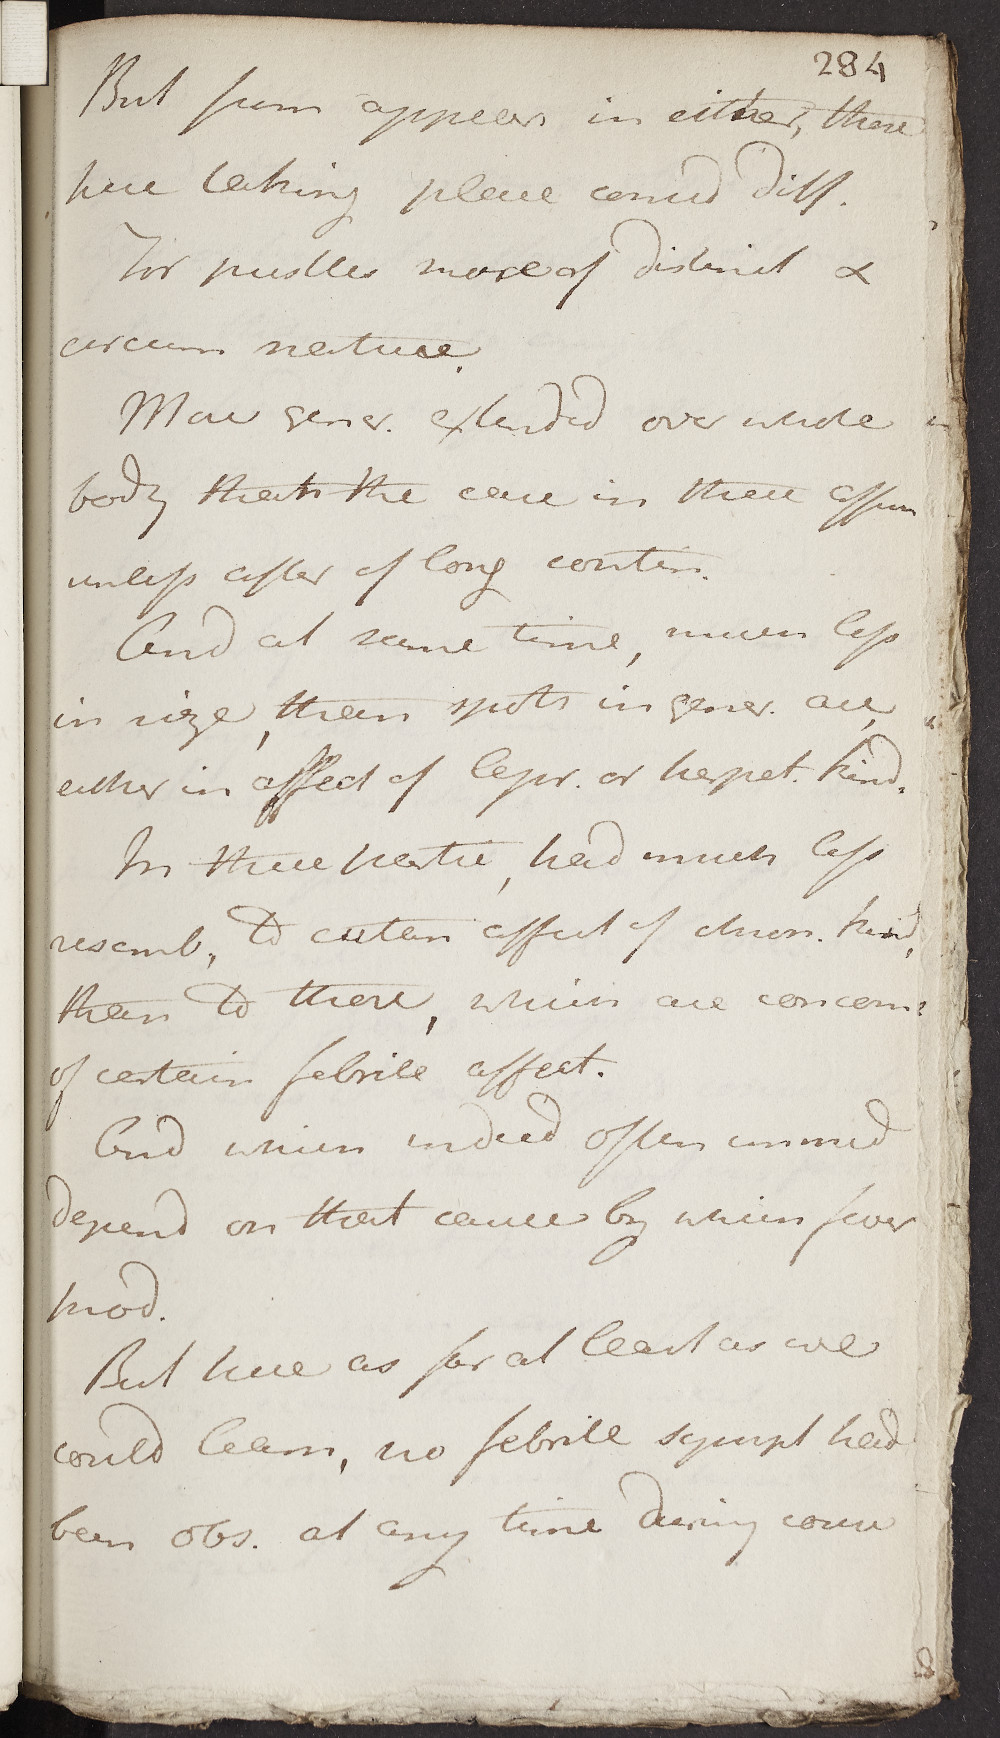 284
But from appear. in either, those
here taking place consid diff.
For pustles more of distinct &
circum nature.
More gener. extended over whole
body than the case in these affn
unless after of long contin.
And at same time, much less
in size, than spots in gener. are,
either in affect of lepr. or herpet. kind.
In these partic, had much less
resemb, to cutan affect of chron. kind,
than to those, which are concom:
of certain febrile affect.
And which indeed often immed
depend on that cause by which fever
prod.
But here as far at least as we
could learn, no febrile sympt had
been obs. at any time during course